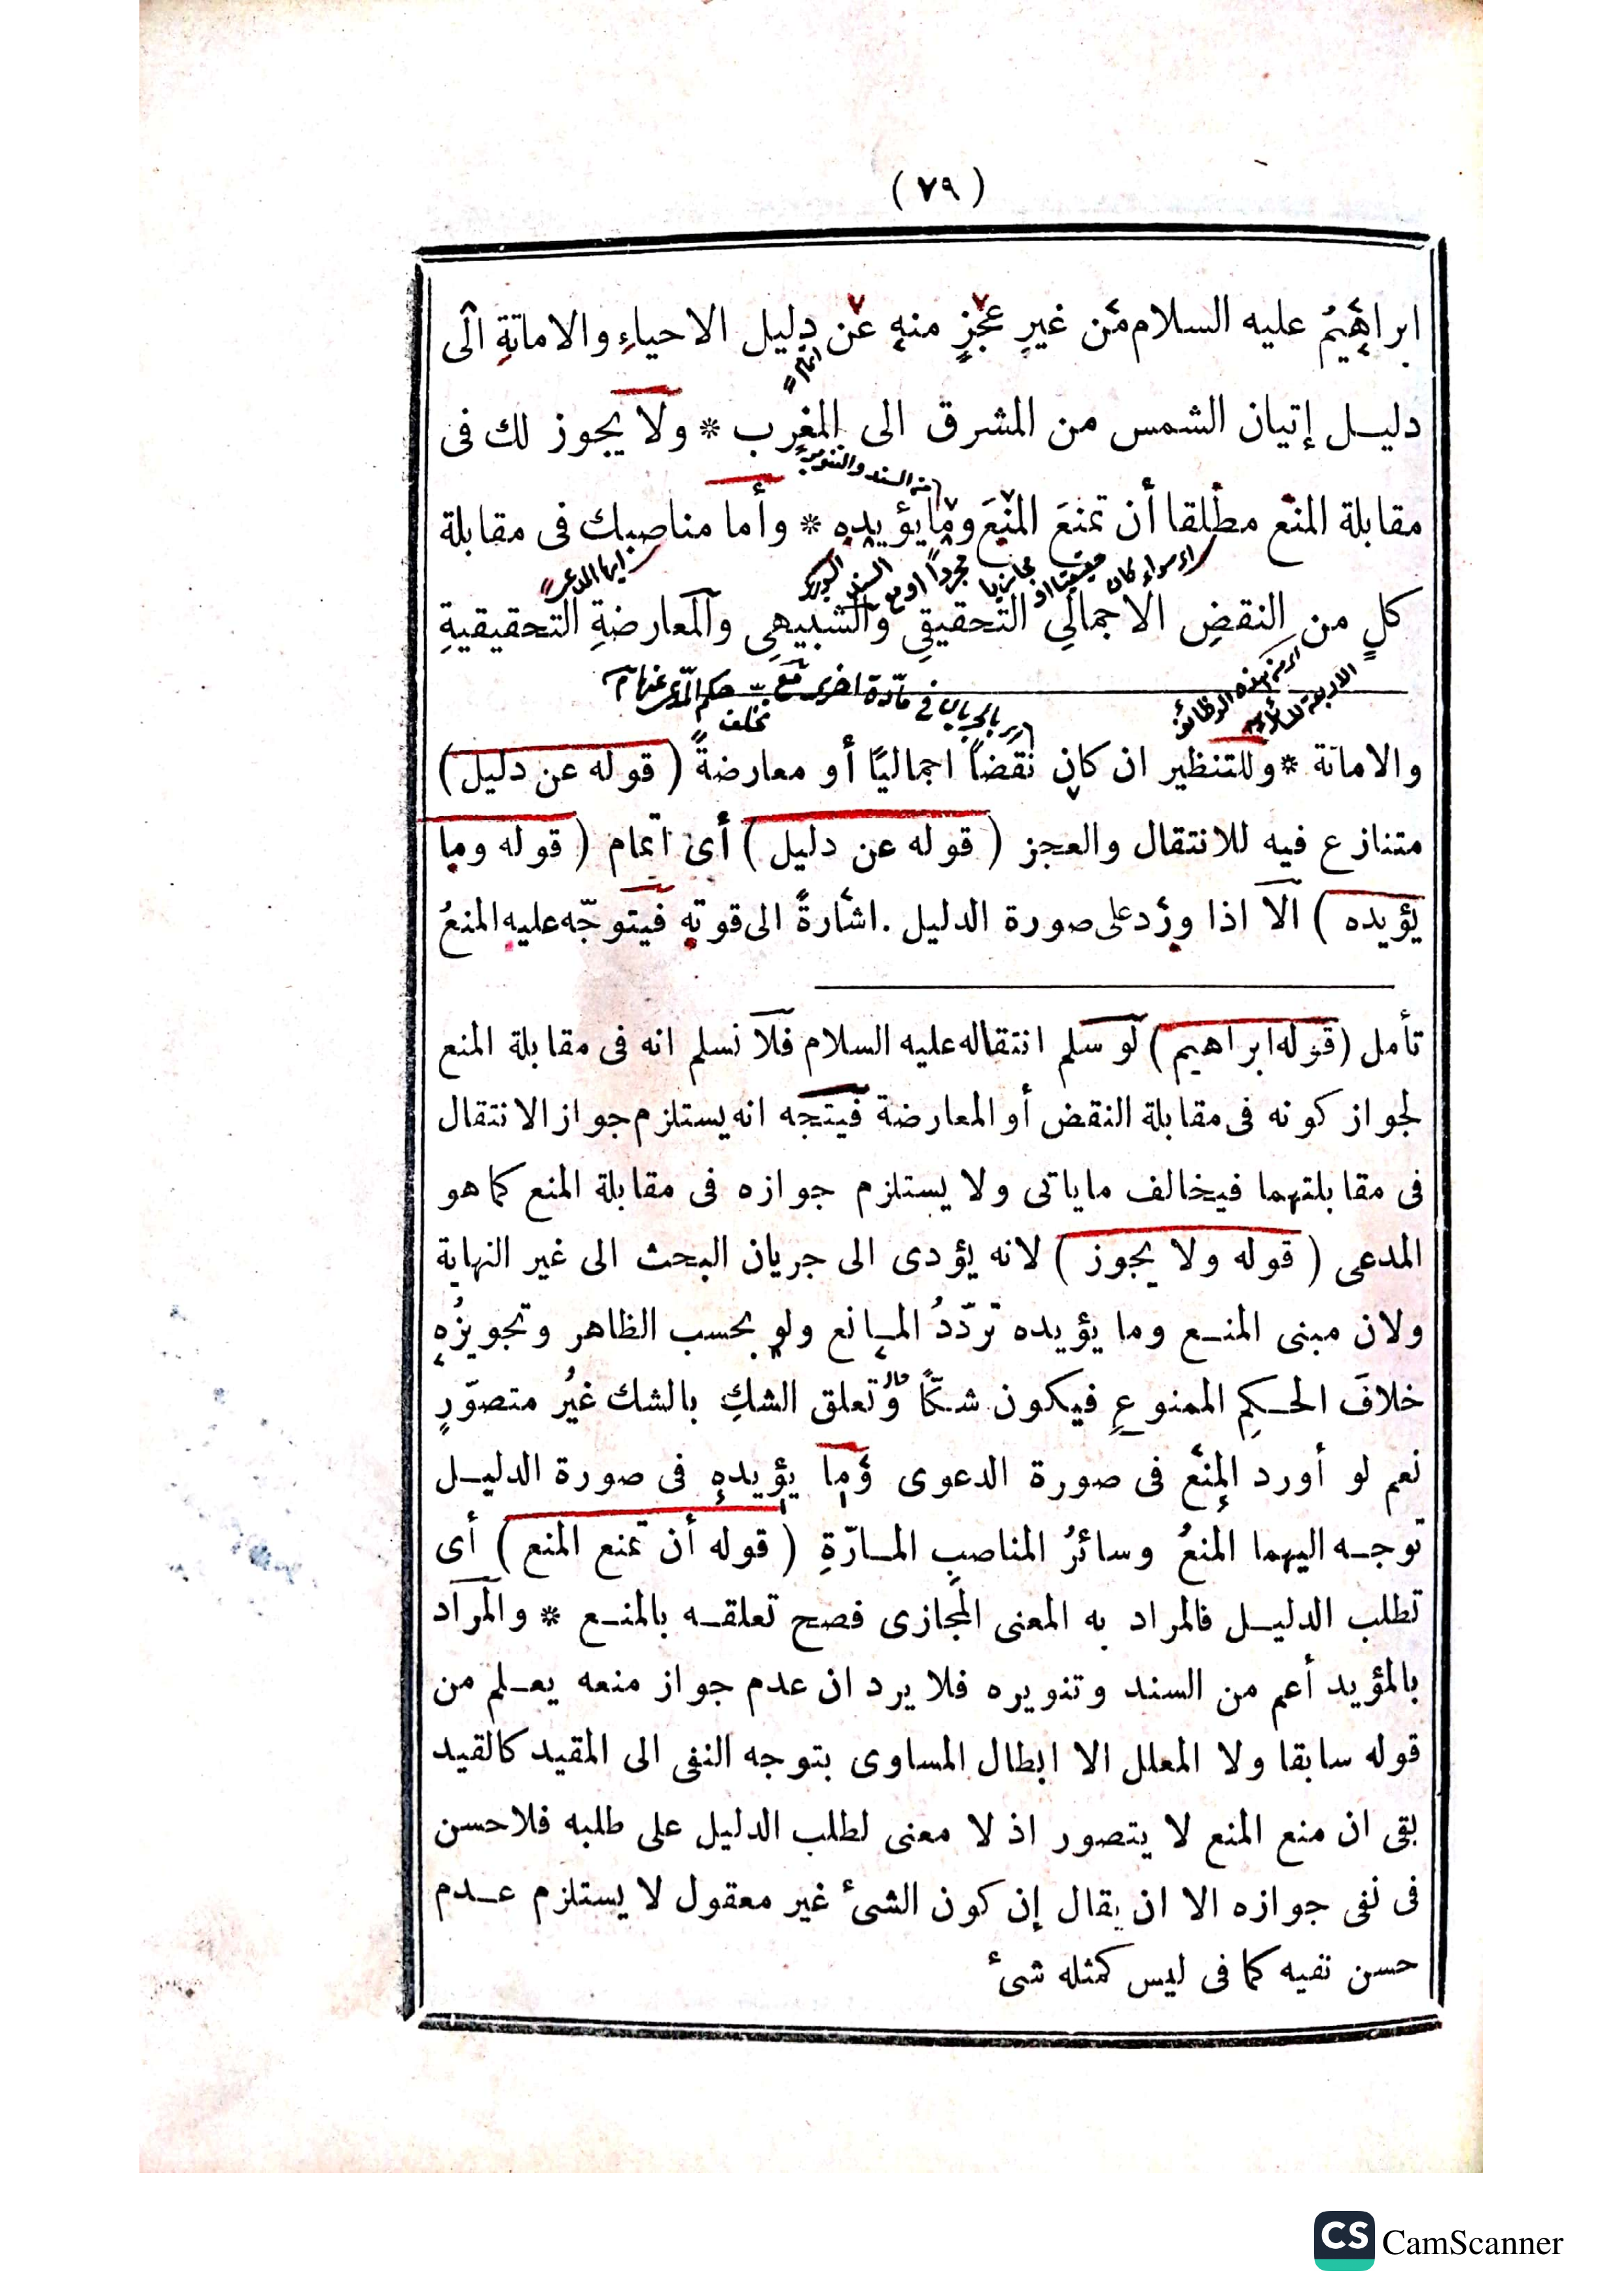 ( ٧٩ )
ابراهيمُ عليه السلام من غيرِ عجزٍ منه عن دليل الاحياءِ والاماتةِ الى
دليل إتيان الشمس من المشرق الى المغرب * ولا يجوز لك فى
مقابلة المنع مطلقا أن تمنعَ المنعَ وما يؤيده * وأما مناصبك فى مقابلة
كلٍ من النقضِ الاجمالىِ التحقيقىِ والشبيهىِ والمعارضةِ التحقيقيةِ
والاماتة * وللتنظير ان كان نقضاً اجماليًا أو معارضةً ( قوله عن دليل )
متنازع فيه للانتقال والعجز ( قوله عن دليل ) أى اتمام ( قوله وما
يؤيده ) الا اذا ورد على صورة الدليل . اشارةً الى قوته فيتوجّه عليه المنعُ
تأمل ( قوله ابراهيم ) لو سلم انتقاله عليه السلام فلا نسلم انه فى مقابلة المنع
لجواز كونه فى مقابلة النقض أو المعارضة فيتجه انه يستلزم جواز الانتقال
فى مقابلتهما فيخالف ماياتى ولا يستلزم جوازه فى مقابلة المنع كما هو
المدعى ( قوله ولا يجوز ) لانه يؤدى الى جريان البحث الى غير النهاية
ولان مبنى المنع وما يؤيده تردّدُ المانع ولو بحسب الظاهر وتجويزُه
خلافَ الحكمِ الممنوعِ فيكون شكًّا وتعلق الشكِ بالشك غيرُ متصوّرٍ
نعم لو أورد المنع فى صورة الدعوى وما يؤيده فى صورة الدليل
توجه اليهما المنعُ وسائرُ المناصبِ المارّةِ ( قوله أن تمنع المنع ) أى
تطلب الدليل فالمراد به المعنى المجازى فصح تعلقه بالمنع * والمراد
بالمؤيد أعم من السند وتنويره فلا يرد ان عدم جواز منعه يعلم من
قوله سابقا ولا المعلل الا ابطال المساوى بتوجه النفى الى المقيد كالقيد
بقى ان منع المنع لا يتصور اذ لا معنى لطلب الدليل على طلبه فلا حسن
فى نفى جوازه الا ان يقال إن كون الشئ غير معقول لا يستلزم عدم
حسن نفيه كما فى ليس كمثله شئ
CS CamScanner